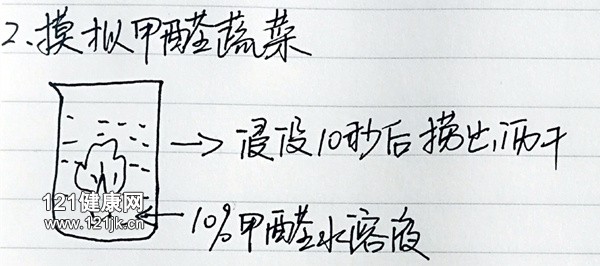 2.摸拟甲醛蔬菜
→浸没10秒后捞出,沥干
121健康网
www.121jk.cn
←10%甲醛水溶液